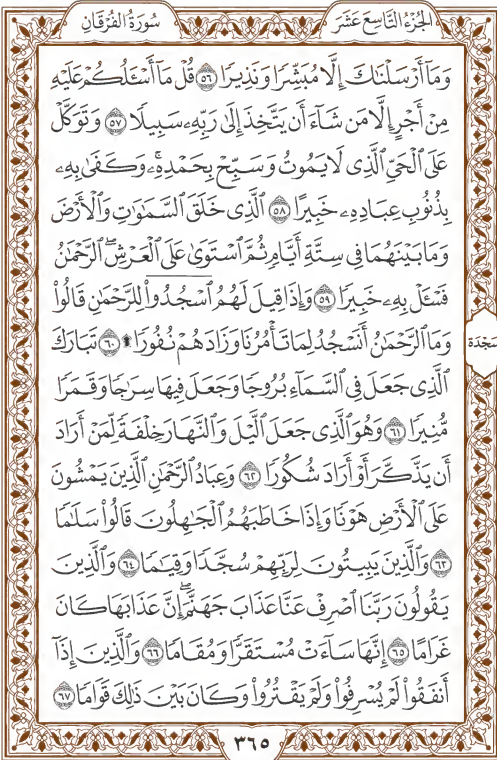 الجزء التاسع عشر
سورة الفرقان
وَمَآ أَرْسَلْنَٰكَ إِلَّا مُبَشِّرًا وَنَذِيرًا ٥٦ قُلْ مَآ أَسْـَٔلُكُمْ عَلَيْهِ
مِنْ أَجْرٍ إِلَّا مَن شَآءَ أَن يَتَّخِذَ إِلَىٰ رَبِّهِۦ سَبِيلًا ٥٧ وَتَوَكَّلْ
عَلَى ٱلْحَيِّ ٱلَّذِى لَا يَمُوتُ وَسَبِّحْ بِحَمْدِهِۦۚ وَكَفَىٰ بِهِۦ
بِذُنُوبِ عِبَادِهِۦ خَبِيرًا ٥٨ ٱلَّذِى خَلَقَ ٱلسَّمَٰوَٰتِ وَٱلْأَرْضَ
وَمَا بَيْنَهُمَا فِى سِتَّةِ أَيَّامٍ ثُمَّ ٱسْتَوَىٰ عَلَى ٱلْعَرْشِۖ ٱلرَّحْمَٰنُ
فَسْـَٔلْ بِهِۦ خَبِيرًا ٥٩ وَإِذَا قِيلَ لَهُمُ ٱسْجُدُوا۟ لِلرَّحْمَٰنِ قَالُوا۟
وَمَا ٱلرَّحْمَٰنُ أَنَسْجُدُ لِمَا تَأْمُرُنَا وَزَادَهُمْ نُفُورًا ۩ ٦٠ تَبَارَكَ
سجدة
ٱلَّذِى جَعَلَ فِى ٱلسَّمَآءِ بُرُوجًا وَجَعَلَ فِيهَا سِرَٰجًا وَقَمَرًا
مُّنِيرًا ٦١ وَهُوَ ٱلَّذِى جَعَلَ ٱلَّيْلَ وَٱلنَّهَارَ خِلْفَةً لِّمَنْ أَرَادَ
أَن يَذَّكَّرَ أَوْ أَرَادَ شُكُورًا ٦٢ وَعِبَادُ ٱلرَّحْمَٰنِ ٱلَّذِينَ يَمْشُونَ
عَلَى ٱلْأَرْضِ هَوْنًا وَإِذَا خَاطَبَهُمُ ٱلْجَٰهِلُونَ قَالُوا۟ سَلَٰمًا
٦٣ وَٱلَّذِينَ يَبِيتُونَ لِرَبِّهِمْ سُجَّدًا وَقِيَٰمًا ٦٤ وَٱلَّذِينَ
يَقُولُونَ رَبَّنَا ٱصْرِفْ عَنَّا عَذَابَ جَهَنَّمَۖ إِنَّ عَذَابَهَا كَانَ
غَرَامًا ٦٥ إِنَّهَا سَآءَتْ مُسْتَقَرًّا وَمُقَامًا ٦٦ وَٱلَّذِينَ إِذَآ
أَنفَقُوا۟ لَمْ يُسْرِفُوا۟ وَلَمْ يَقْتُرُوا۟ وَكَانَ بَيْنَ ذَٰلِكَ قَوَامًا ٦٧
٣٦٥